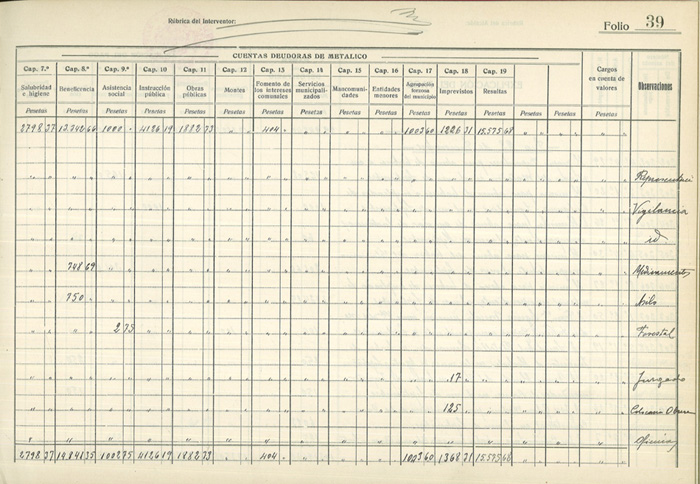 Rúbrica del Interventor:
Folio 39
CUENTAS DEUDORAS DE METALICO
Cap. 7.º Cap. 8.º Cap. 9.º Cap. 10 Cap. 11 Cap. 12 Cap. 13 Cap. 14 Cap. 15 Cap. 16 Cap. 17 Cap. 18 Cap. 19
Salubridad e higiene Beneficencia Asistencia social Instrucción pública Obras públicas Montes Fomento de los intereses comunales Servicios municipalizados Mancomunidades Entidades menores Agrupación forzosa del municipio Imprevistos Resultas Cargos en cuenta de valores Observaciones
Pesetas Pesetas Pesetas Pesetas Pesetas Pesetas Pesetas Pesetas Pesetas Pesetas Pesetas Pesetas Pesetas Pesetas
2798 37 13.342 66 1000 " 4126 19 1882 73 " " 404 " " " " " " " 1003 60 1226 31 15.575 68
Vigilancia
id
748 69 Medicamentos
750 " Asilo
2 75 Forestal
17 Juzgado
125 Obrera
2798 37 14.841 35 1002 75 4126 19 1882 73 404 1003 60 1368 31 15.575 68